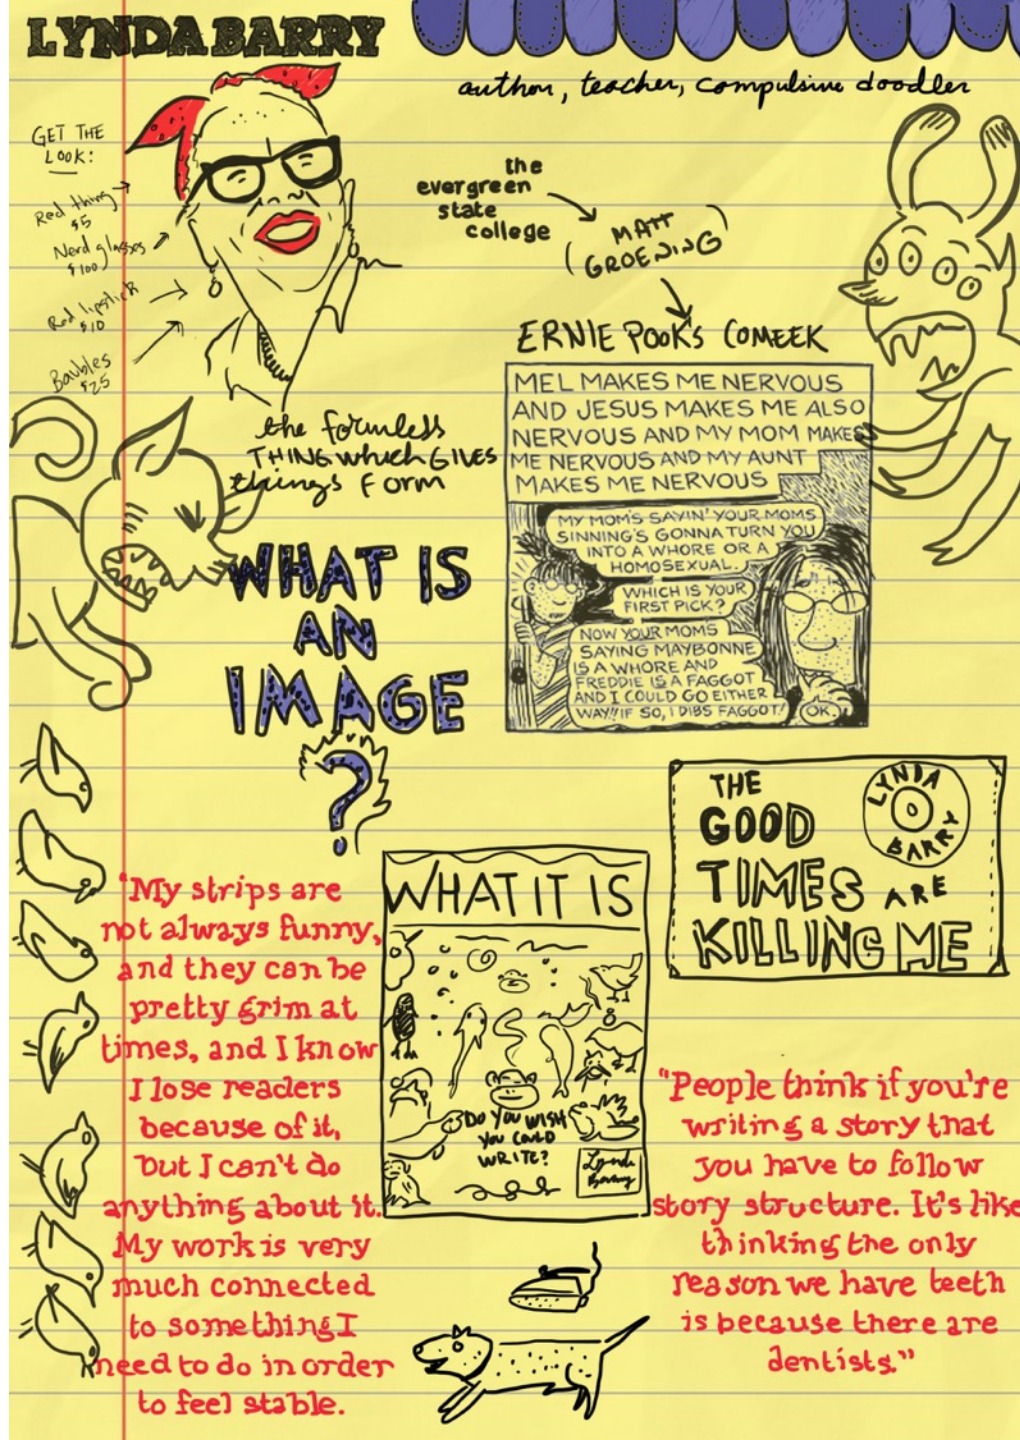 LYNDA BARRY
author, teacher, compulsive doodler
GET THE
LOOK:
Red thing
$5
Nerd glasses
$100
Red lipstick
$10
Baubles
$25
the
evergreen
state
college
(MATT
GROENING)
ERNIE POOK'S COMEEK
MEL MAKES ME NERVOUS
AND JESUS MAKES ME ALSO
NERVOUS AND MY MOM MAKES
ME NERVOUS AND MY AUNT
MAKES ME NERVOUS
MY MOM'S SAYIN' YOUR MOMS
SINNING'S GONNA TURN YOU
INTO A WHORE OR A
HOMOSEXUAL.
WHICH IS YOUR
FIRST PICK?
NOW YOUR MOMS
SAYING MAYBONNE
IS A WHORE AND
FREDDIE IS A FAGGOT
AND I COULD GO EITHER
WAY!! IF SO, I DIBS FAGGOT!
OK.
the formless
THING which GIVES
things Form
WHAT IS
AN
IMAGE
?
THE
GOOD
TIMES ARE
KILLING ME
LYNDA
BARRY
"My strips are
not always funny,
and they can be
pretty grim at
times, and I know
I lose readers
because of it,
but I can't do
anything about it.
My work is very
much connected
to something I
need to do in order
to feel stable.
WHAT IT IS
DO YOU WISH
YOU COULD
WRITE?
Lynda
Barry
"People think if you're
writing a story that
you have to follow
story structure. It's like
thinking the only
reason we have teeth
is because there are
dentists."